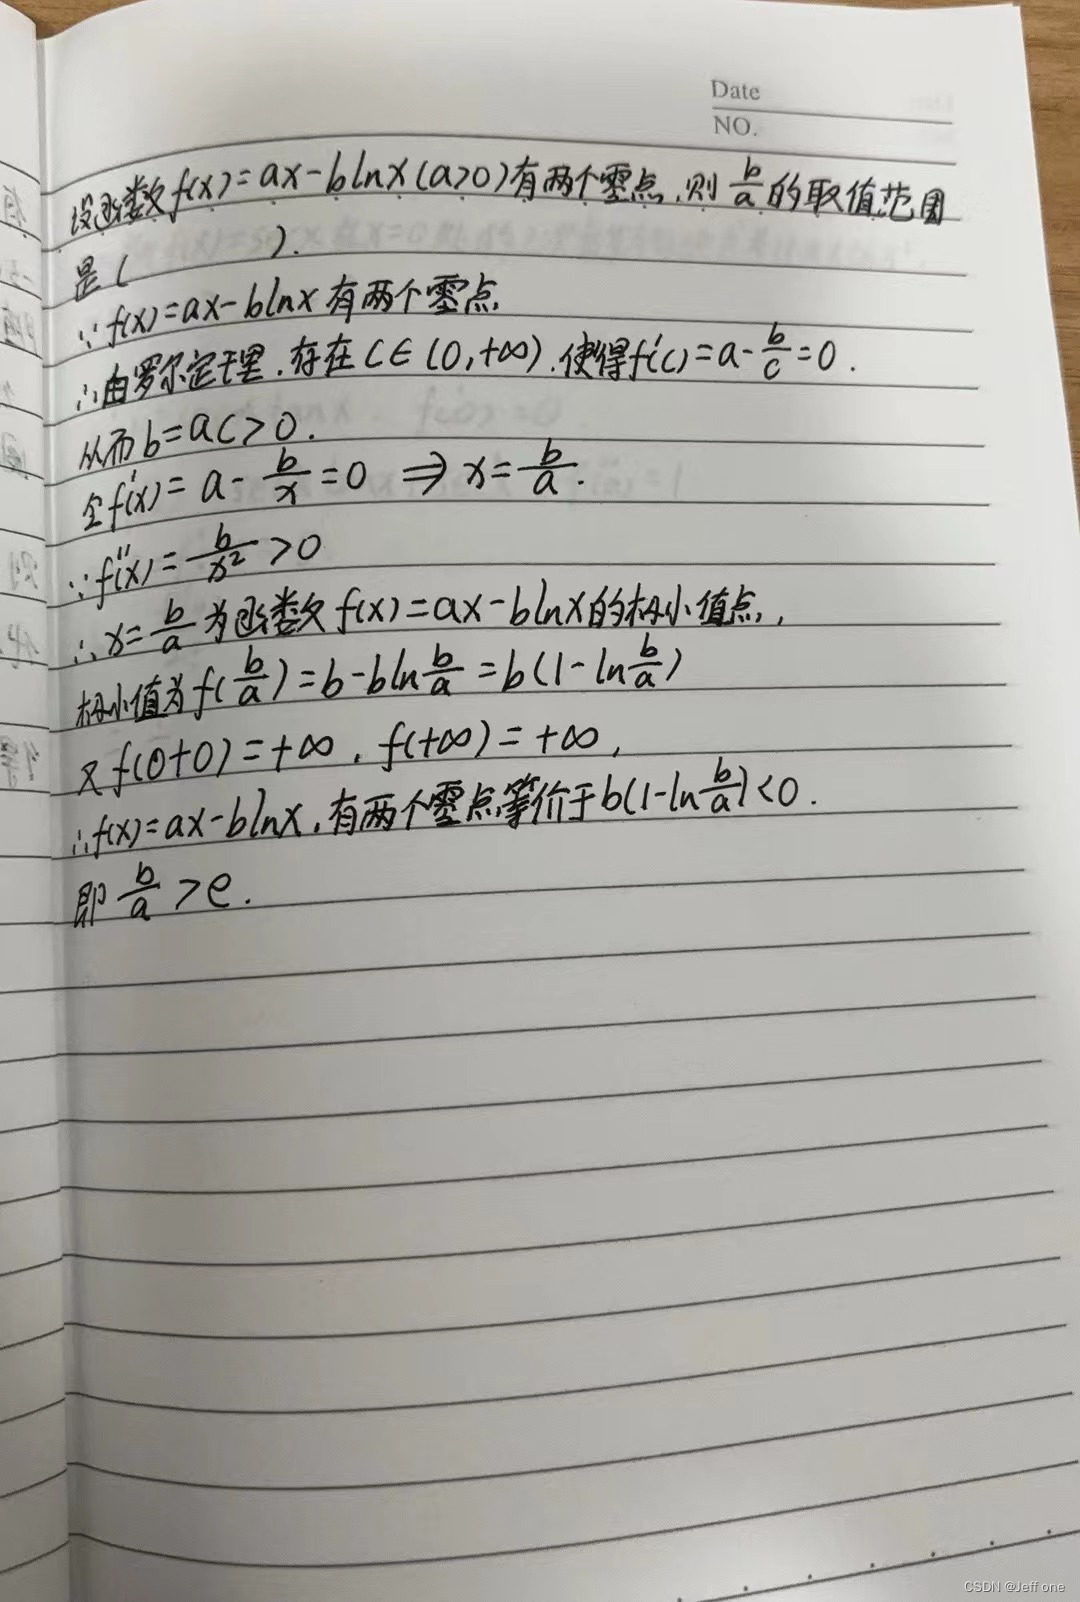 Date
NO.
设函数f(x)=ax-blnx(a>0)有两个零点,则b/a的取值范围
是( ).
∵f(x)=ax-blnx有两个零点
∴由罗尔定理,存在C∈(0,+∞),使得f'(c)=a-b/c=0.
从而b=ac>0.
令f'(x)=a-b/x=0 ⇒ x=b/a.
∵f''(x)=b/x²>0
∴x=b/a为函数f(x)=ax-blnx的极小值点,
极小值为f(b/a)=b-bln b/a=b(1-ln b/a)
又f(0+0)=+∞,f(+∞)=+∞,
∴f(x)=ax-blnx,有两个零点等价于b(1-ln b/a)<0.
即b/a>e.
CSDN @Jeff one